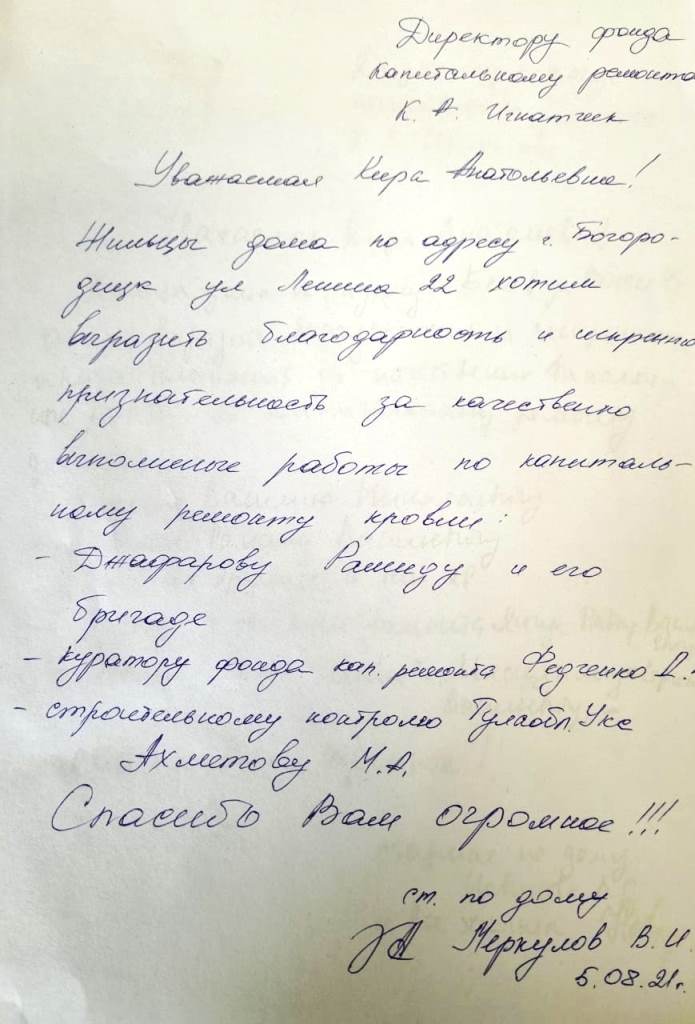 Директору фонда
капитальному ремонта
К. А. Игнатчик
Уважаемая Кира Анатольевна!
Жильцы дома по адресу г. Богоро-
дицк ул Ленина 22 хотим
выразить благодарность и искренню
признательность за качественно
выполненые работы по капиталь-
ному ремонту кровли:
- Джафарову Рашиду и его
бригаде
- куратору фонда кап. ремонта Федченко Д.
- строительному контролю Тулаобл.Укс
Ахметову М.А.
Спасибо Вам огромное!!!
ст. по дому
Меркулов В.И.
5.08.21г.